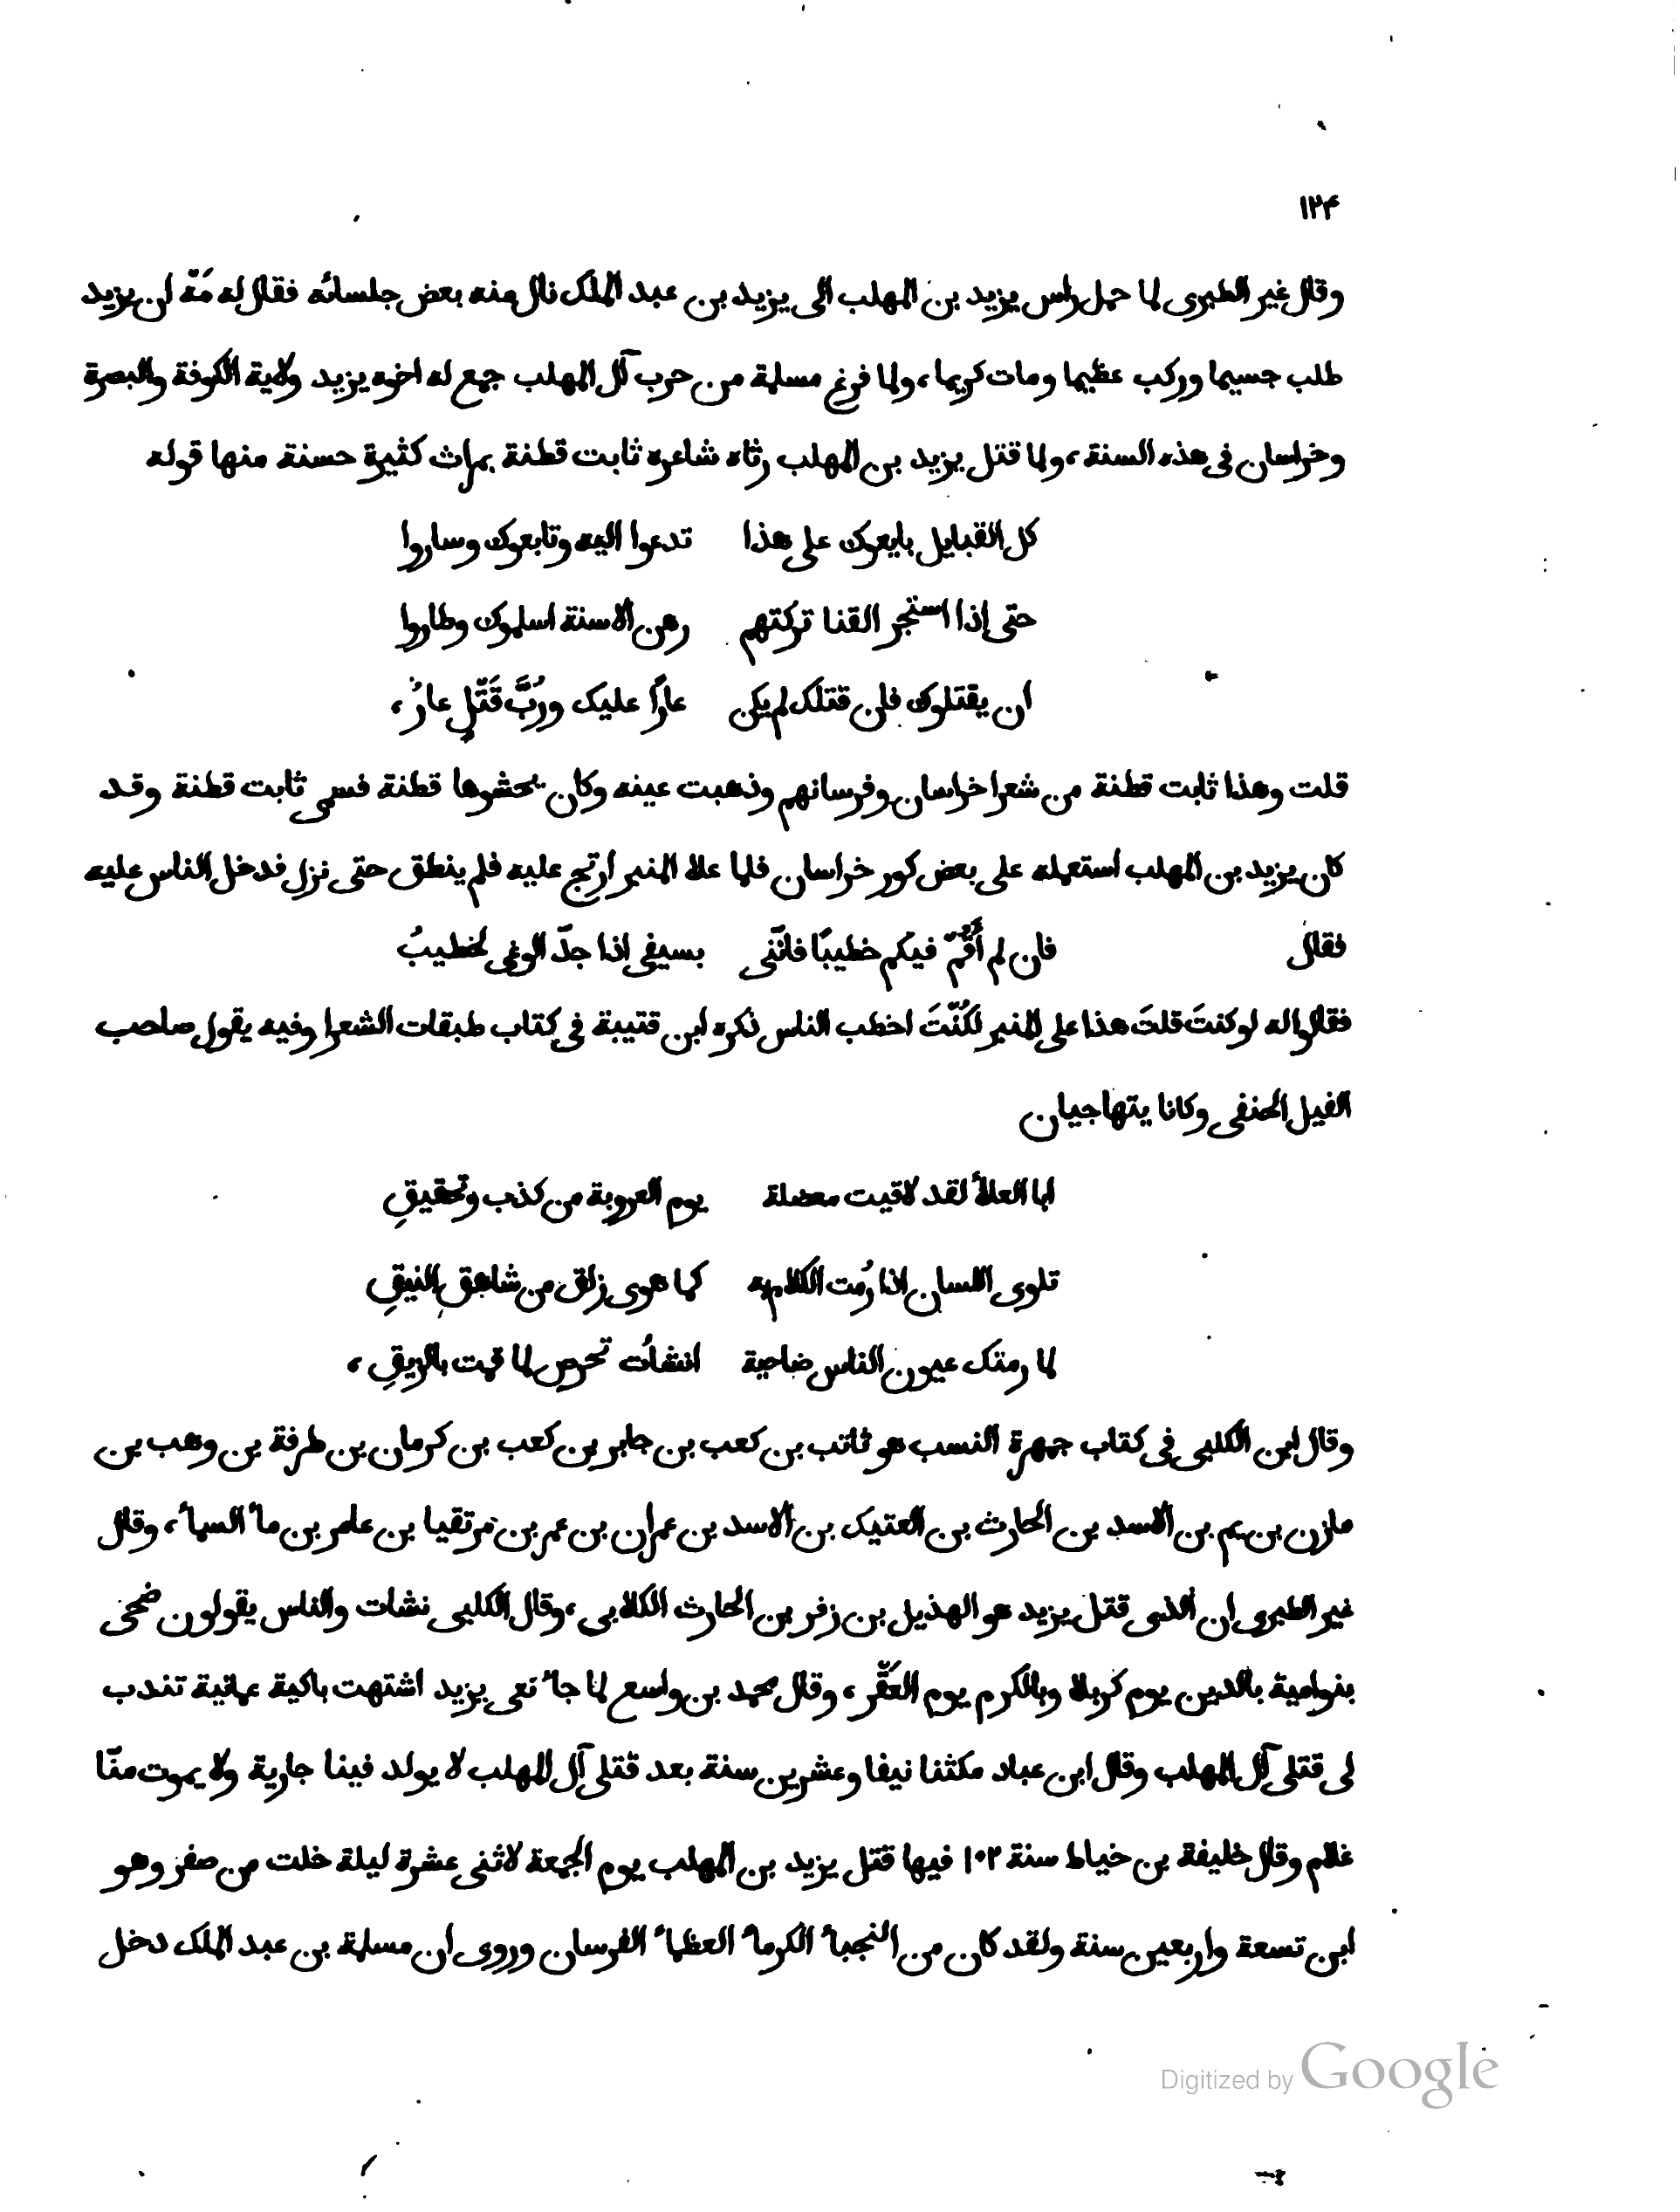 ١٢۴
وقال غير الطبرى لما حمل راس يزيد بن المهلب الى يزيد بن عبد الملك نال منه بعض جلسائه فقال له مَهْ ان يزيد
طلب جسيما وركب عظيما ومات كريما، ولما فرغ مسلمة من حرب آل المهلب جمع له اخوه يزيد ولاية الكوفة والبصرة
وخراسان فى هذه السنة، ولما قتل يزيد بن المهلب رثاه شاعره ثابت قطنة بمراث كثيرة حسنة منها قوله
كل القبايل بايعوك على هذا تدعوا اليه وتابعوك وساروا
حتى إذا استجر القنا تركتهم رهن الاسنة اسلموك وطاروا
ان يقتلوك فان قتلك لم يكن عارًا عليك ورُبَّ قَتْلٍ عارُ،
قلت وهذا ثابت قطنة من شعرا خراسان وفرسانهم وذهبت عينه وكان يحشوها قطنة فسمى ثابت قطنة وقد
كان يزيد بن المهلب استعمله على بعض كور خراسان فلما علا المنبر ارتج عليه فلم ينطق حتى نزل فدخل الناس عليه
فقال فان لم أَقُمْ فيكم خطيبًا فانّنى بسيفى اذا جدّ الوغى لخطيبُ
فقالوا له لو كنتَ قلتَ هذا على المنبر لكُنْتَ اخطب الناس ذكره ابن قتيبة فى كتاب طبقات الشعرا وفيه يقول صاحب
الفيل الحنفى وكانا يتهاجيان
ابا العلأ لقد لاقيت معضلة يوم العروبة من كذب وتحقيقِ
تلوى اللسان اذا رُمت الكلام به كما هوى زلق من شاهق النيقِ
لما رمتك عيون الناس ضاحية انشأت تحرص لما قمت بالريقِ،
وقال ابن الكلبى فى كتاب جمهرة النسب هو ثابت بن كعب بن جابر بن كعب بن كرمان بن طرفة بن وهب بن
مازن بن يم بن الاسد بن الحارث بن العتيك بن الاسد بن عمران بن عمر بن مرتقيا بن عامر بن مأ السمأ، وقال
غير الطبرى ان الذى قتل يزيد هو الهذيل بن زفر بن الحارث الكلابى، وقال الكلبى نشات والناس يقولون ضحى
بنوامية بالدين يوم كربلا وبالكرم يوم العَقْر، وقال محمد بن واسع لما جأ نعى يزيد اشتهت باكية عمانية تندب
لى قتلى آل المهلب وقال ابن عباد مكثنا نيفا وعشرين سنة بعد قتلى آل المهلب لا يولد فينا جارية ولا يموت منّا
غلام وقال خليفة بن خياط سنة ١٠٢ فيها قتل يزيد بن المهلب يوم الجمعة لاثنى عشرة ليلة خلت من صفر وهو
ابن تسعة واربعين سنة ولقد كان من النجبأ الكرمأ العظمأ الفرسان وروى ان مسلمة بن عبد الملك دخل
Digitized by Google